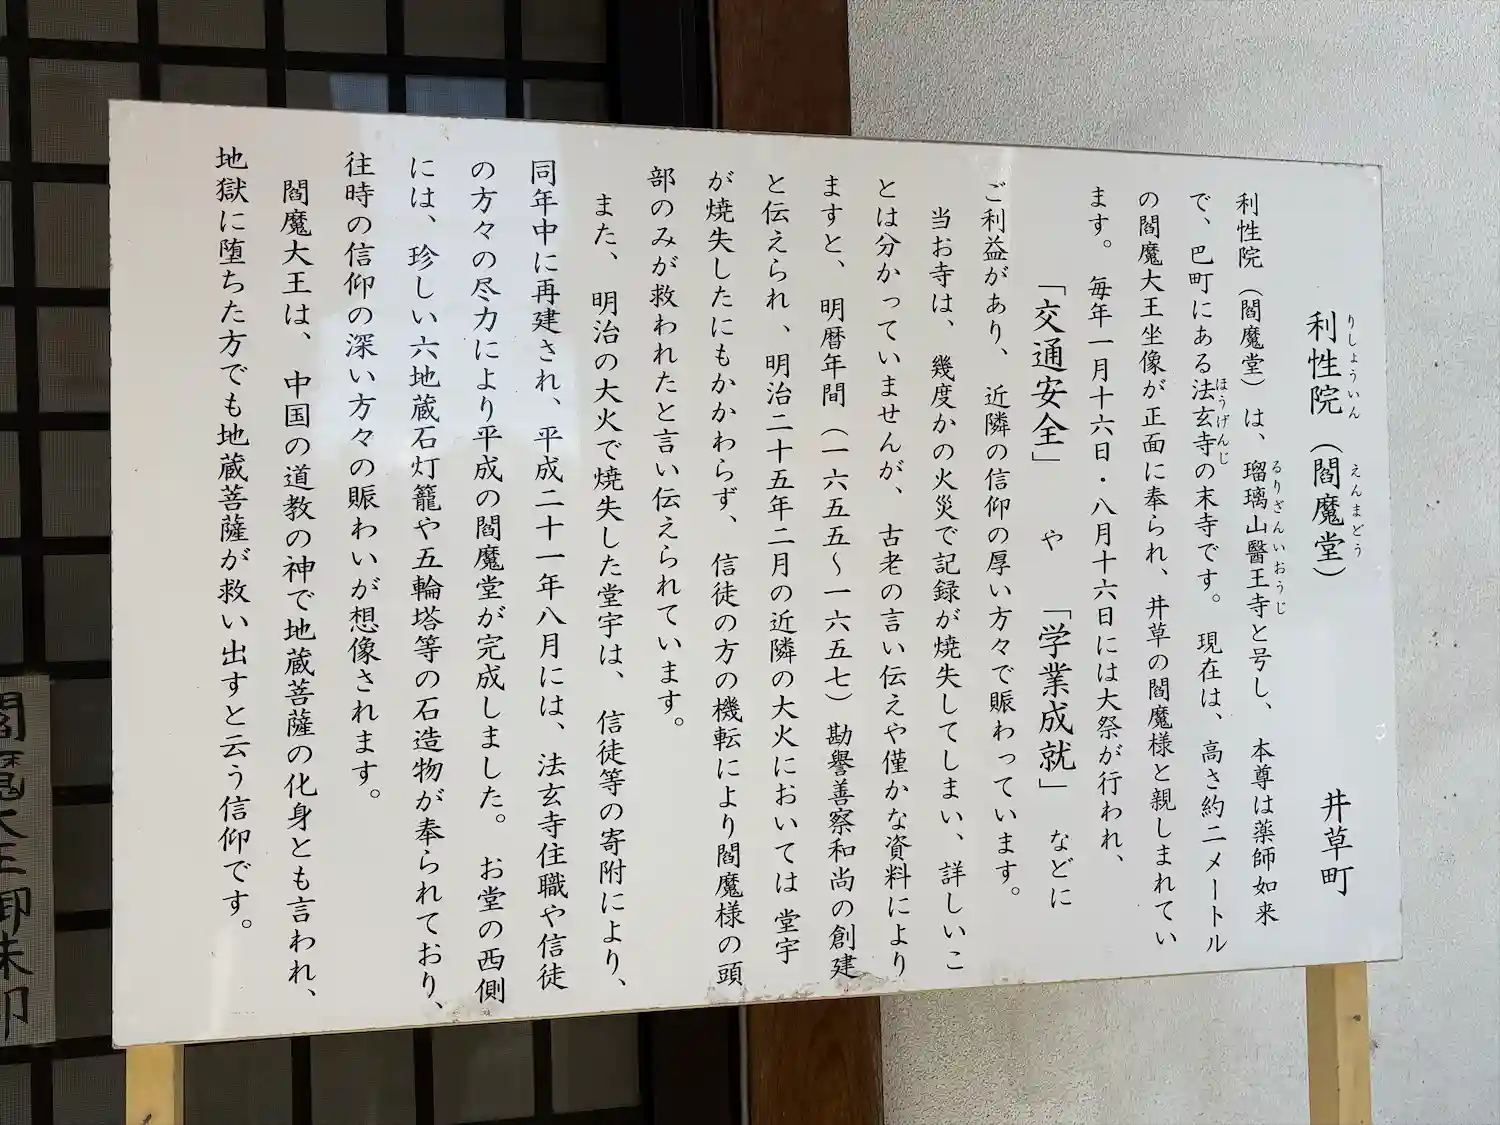 利性院（閻魔堂）　井草町
りしょういん　えんまどう
利性院（閻魔堂）は、瑠璃山醫王寺と号し、本尊は薬師如来
るりざんいおうじ
で、巴町にある法玄寺の末寺です。現在は、高さ約二メートル
ほうげんじ
の閻魔大王坐像が正面に奉られ、井草の閻魔様と親しまれてい
ます。毎年一月十六日・八月十六日には大祭が行われ、
「交通安全」　や　「学業成就」　などに
ご利益があり、近隣の信仰の厚い方々で賑わっています。
当お寺は、幾度かの火災で記録が焼失してしまい、詳しいこ
とは分かっていませんが、古老の言い伝えや僅かな資料により
ますと、明暦年間（一六五五～一六五七）勘譽善察和尚の創建
と伝えられ、明治二十五年二月の近隣の大火においては堂宇
が焼失したにもかかわらず、信徒の方の機転により閻魔様の頭
部のみが救われたと言い伝えられています。
また、明治の大火で焼失した堂宇は、信徒等の寄附により、
同年中に再建され、平成二十一年八月には、法玄寺住職や信徒
の方々の尽力により平成の閻魔堂が完成しました。お堂の西側
には、珍しい六地蔵石灯籠や五輪塔等の石造物が奉られており、
往時の信仰の深い方々の賑わいが想像されます。
閻魔大王は、中国の道教の神で地蔵菩薩の化身とも言われ、
地獄に堕ちた方でも地蔵菩薩が救い出すと云う信仰です。
閻魔大王御朱印